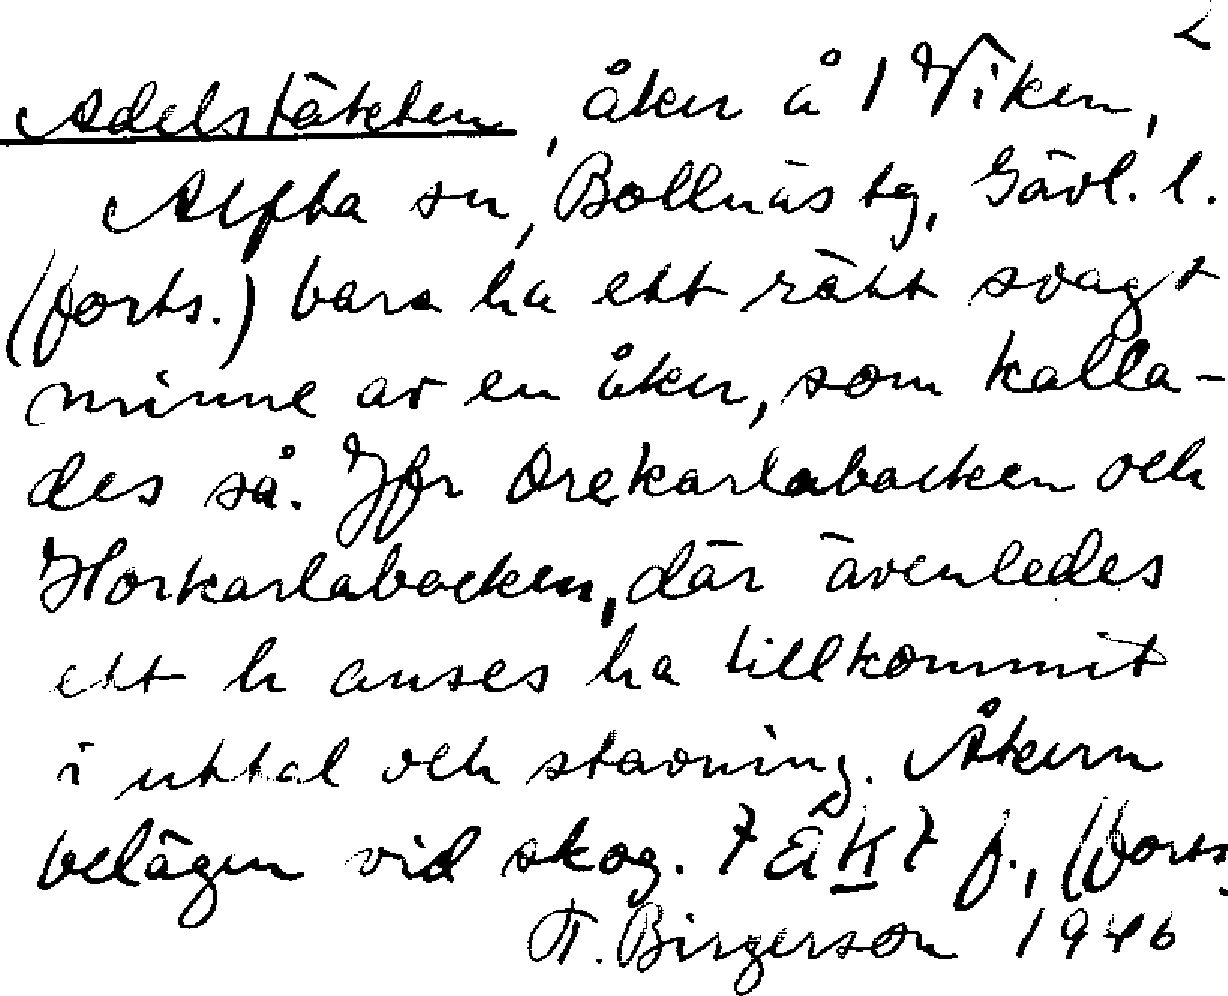 2
Adelstäkten, åker å 1 Viken,
Alfta sn, Bollnäs tg, Gävl. l.
(forts.) bara ha ett rätt svagt
minne av en åker, som kalla-
des så. Jfr Orekarlabacken och
Horkarlabacken, där ävenledes
ett h anses ha tillkommit
i uttal och stavning. Åkern
belägen vid skog. f., (forts.
T. Birgerson 1946